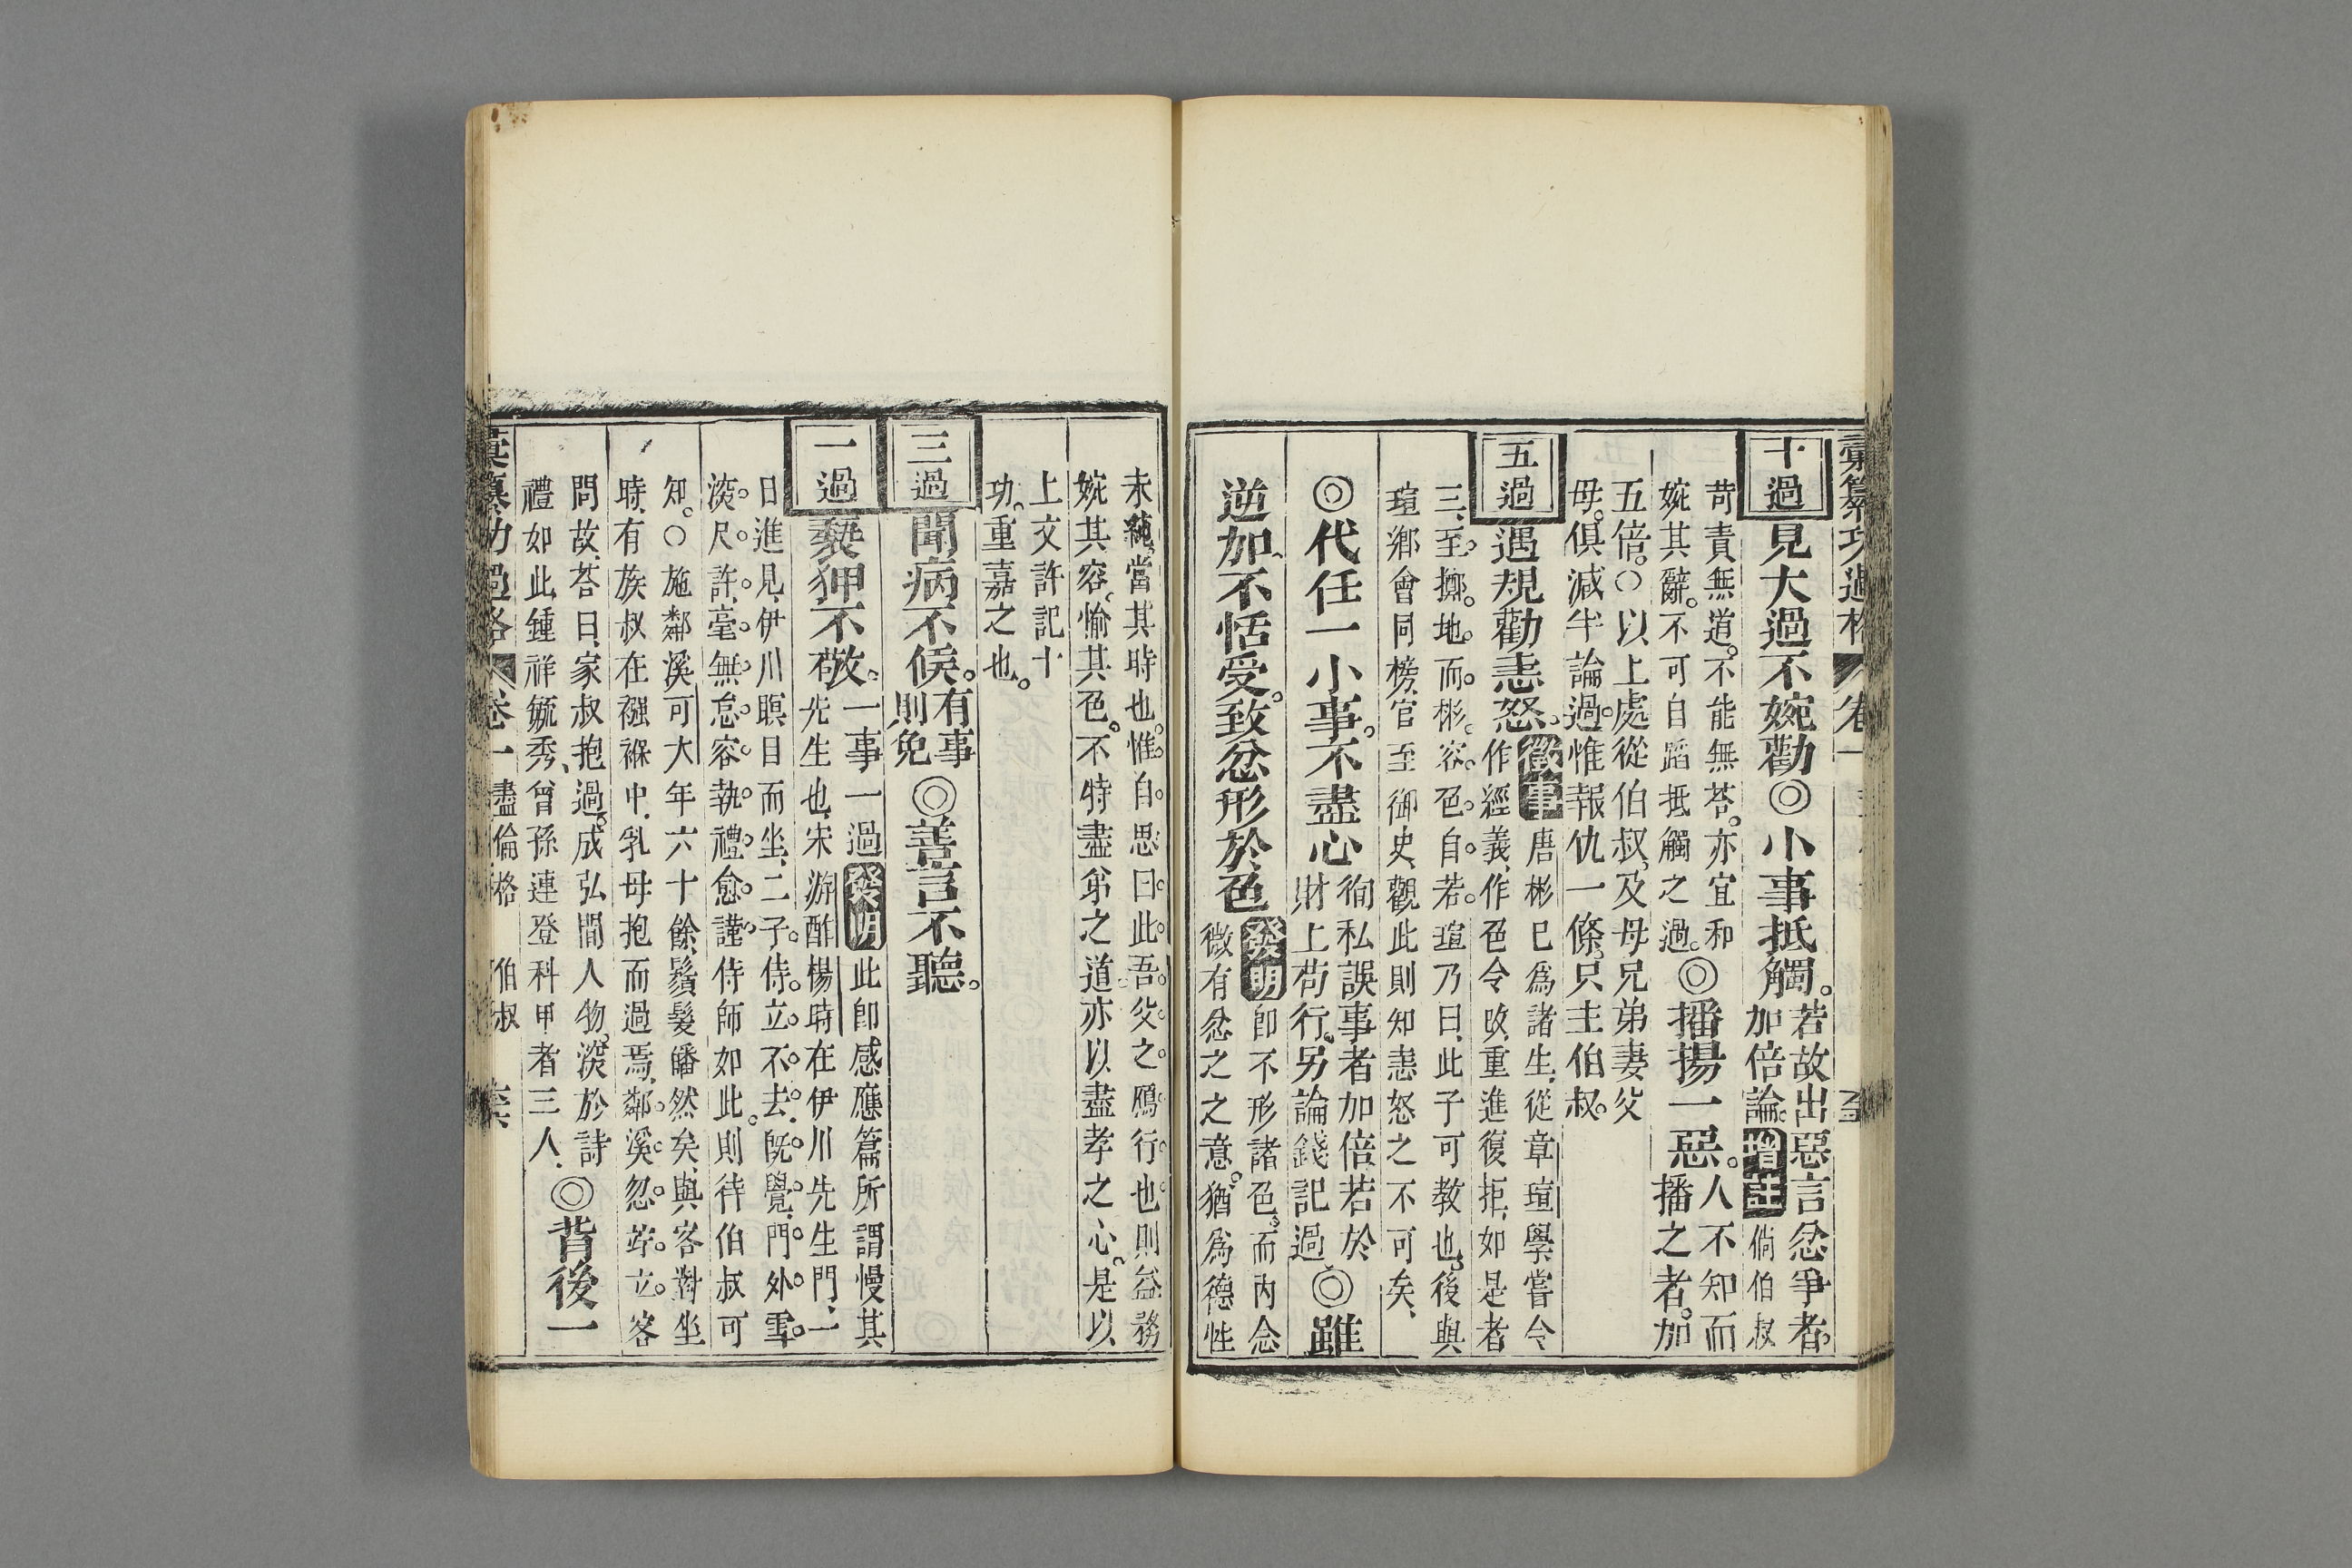 彙纂功過格 卷一
十過 見大過不婉勸◎小事抵觸。若故出惡言忿爭者。
加倍論。增註 倘伯叔
苛責無道。不能無荅。亦宜和
婉其辭。不可自蹈抵觸之過。◎播揚一惡。人不知而
播之者。加
五倍。○以上處從伯叔、及母兄弟妻父
母。俱減半論過。惟報仇一條、只主伯叔。
五過 遇規勸恚怒。徵事 唐彬已爲諸生、從章瑄學嘗令
作經義、作色令改、重進復拒、如是者
三、至擲地。而彬容色自若。瑄乃曰、此子可教也。後與
瑄鄉會同榜、官至御史、觀此則知恚怒之不可矣、
◎代任一小事。不盡心 徇私誤事者加倍若於
財上苟行。另論錢記過◎雖
逆加、不恬受。致忿形於色 發明 卽不形諸色。而內念
微有忿之之意。猶爲德性
未純、當其時也。惟自思曰。此吾父之鴈行也則益務
婉其容。愉其色。不特盡弟之道。亦以盡孝之心。是以
上文許記十
功。重嘉之也。
三過 聞病不候。有事
則免 ◎善言不聽。
一過 褻狎不敬。一事一過 發明 此卽感應篇所謂慢其
先生也、宋游酢楊時在伊川先生門、一
日進見、伊川瞑目而坐、二子侍立不去、旣覺、門外雪
深尺許、毫無怠容、執禮愈謹、侍師如此。則待伯叔可
知。○施鄰溪可大年六十餘、鬚髮皤然矣、與客對坐
時、有族叔在襁褓中、乳母抱而過焉、鄰溪忽竚立。客
問故、荅曰、家叔抱過。成弘間人物。深於詩
禮如此、鍾祥毓秀、曾孫連登科甲者三人、◎背後一
彙纂功過格 卷一 盡倫格 伯叔